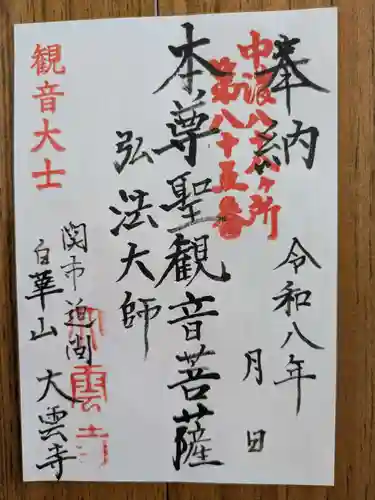 奉納
中濃八十八ヶ所
第八十五番
令和八年
月 日
本尊聖観音菩薩
弘法大師
観音大士
関市迫間
白華山 大雲寺